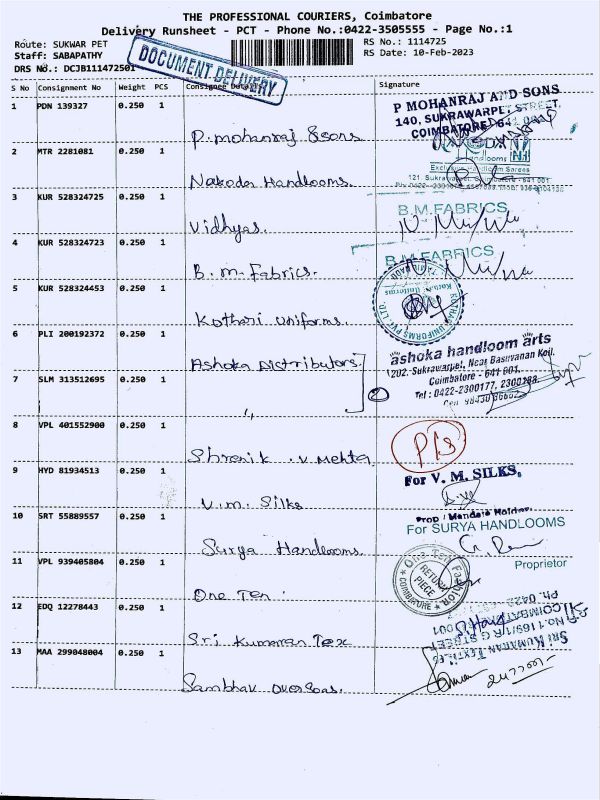 THE PROFESSIONAL COURIERS, Coimbatore
Delivery Runsheet - PCT - Phone No.:0422-3505555 - Page No.:1
Route: SUKWAR PET
RS No.: 1114725
Staff: SABAPATHY
RS Date: 10-Feb-2023
DRS No.: DCJB111472501
DOCUMENT DELIVERY
S No Consignment No Weight PCS Consignee Details Signature
1 PDN 139327 0.250 1
P. mohanraj & sons
P MOHANRAJ AND SONS
140, SUKRAWARPET STREET,
COIMBATORE - 641 001
2 MTR 2281081 0.250 1
Nakoda Handlooms.
Exclusive Handloom Sarees
3 KUR 528324725 0.250 1
Vidhyas.
B.M.FABRICS
4 KUR 528324723 0.250 1
B. m. Fabrics.
B.M.FABRICS
5 KUR 528324453 0.250 1
Kothari uniforms.
6 PLI 200192372 0.250 1
Ashoka Distributors
ashoka handloom arts
202, Sukrawarpet, Near Basuvanan Koil,
Coimbatore - 641 001.
Tel : 0422-2300177, 2300188.
7 SLM 313512695 0.250 1
"
2
8 VPL 401552900 0.250 1
Shrenik . v. Mehta
P/S
9 HYD 81934513 0.250 1
V. m. Silks
For V. M. SILKS,
Prop / Mandate Holder.
10 SRT 55889557 0.250 1
Surya Handlooms.
For SURYA HANDLOOMS
Proprietor
11 VPL 939405804 0.250 1
One Ten.
RETURN PIECE
COIMBATORE
12 EDQ 12278443 0.250 1
Sri Kumaran Tex
SRI KUMARAN TEXTILES
No.1169/1, R.G STREET
13 MAA 299848004 0.250 1
Sambhav overseas.